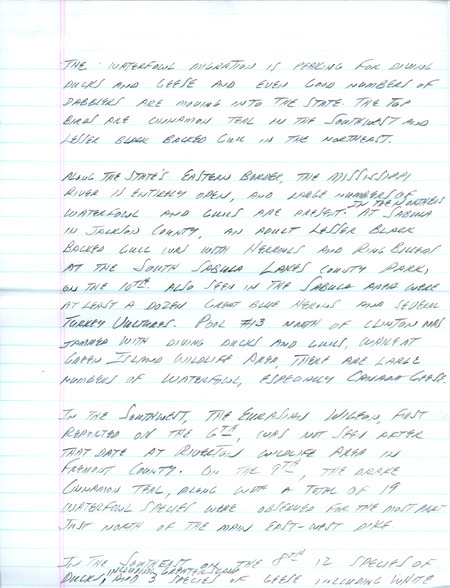 THE WATERFOWL MIGRATION IS PEAKING FOR DIVING
DUCKS AND GEESE AND EVEN GOOD NUMBERS OF
DABBLERS ARE MOVING INTO THE STATE. THE TOP
BIRDS ARE CINNAMON TEAL IN THE SOUTHWEST AND
LESSER BLACK BACKED GULL IN THE NORTHEAST.
ALONG THE STATE'S EASTERN BORDER, THE MISSISSIPPI
RIVER IS ENTIRELY OPEN, AND LARGE NUMBERS OF
IN THE NORTHEAST
WATERFOWL AND GULLS ARE PRESENT. AT SABULA
IN JACKSON COUNTY, AN ADULT LESSER BLACK
BACKED GULL WAS WITH HERRINGS AND RING BILLEDS
AT THE SOUTH SABULA LAKES COUNTY PARK,
ON THE 10TH. ALSO SEEN IN THE SABULA AREA WERE
AT LEAST A DOZEN GREAT BLUE HERONS AND SEVERAL
TURKEY VULTURES. POOL #13 NORTH OF CLINTON WAS
JAMMED WITH DIVING DUCKS AND GULLS, WHILE AT
GREEN ISLAND WILDLIFE AREA, THERE ARE LARGE
NUMBERS OF WATERFOWL, ESPECIALLY CANADA GEESE.
IN THE SOUTHWEST, THE EURASIAN WIGEON, FIRST
REPORTED ON THE 6TH, WAS NOT SEEN AFTER
THAT DATE AT RIVERTON WILDLIFE AREA IN
FREMONT COUNTY. ON THE 9TH, THE DRAKE
CINNAMON TEAL, ALONG WITH A TOTAL OF 19
WATERFOWL SPECIES WERE OBSERVED FOR THE MOST PART
JUST NORTH OF THE MAIN EAST-WEST DIKE.
IN THE SOUTHEAST ON THE 8TH 12 SPECIES OF
INCLUDING GREATER SCAUP
DUCKS, AND 3 SPECIES OF GEESE INCLUDING WHITE